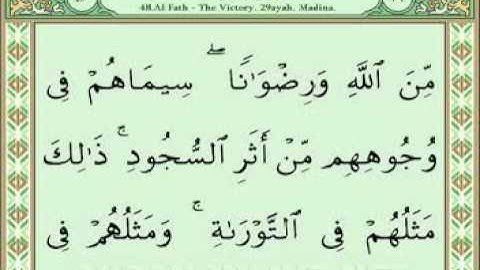 48.Al Fath - The Victory. 29ayah. Madina.
مِّنَ ٱللَّهِ وَرِضْوَٰنًا ۖ سِيمَاهُمْ فِى
وُجُوهِهِم مِّنْ أَثَرِ ٱلسُّجُودِ ۚ ذَٰلِكَ
مَثَلُهُمْ فِى ٱلتَّوْرَىٰةِ ۚ وَمَثَلُهُمْ فِى